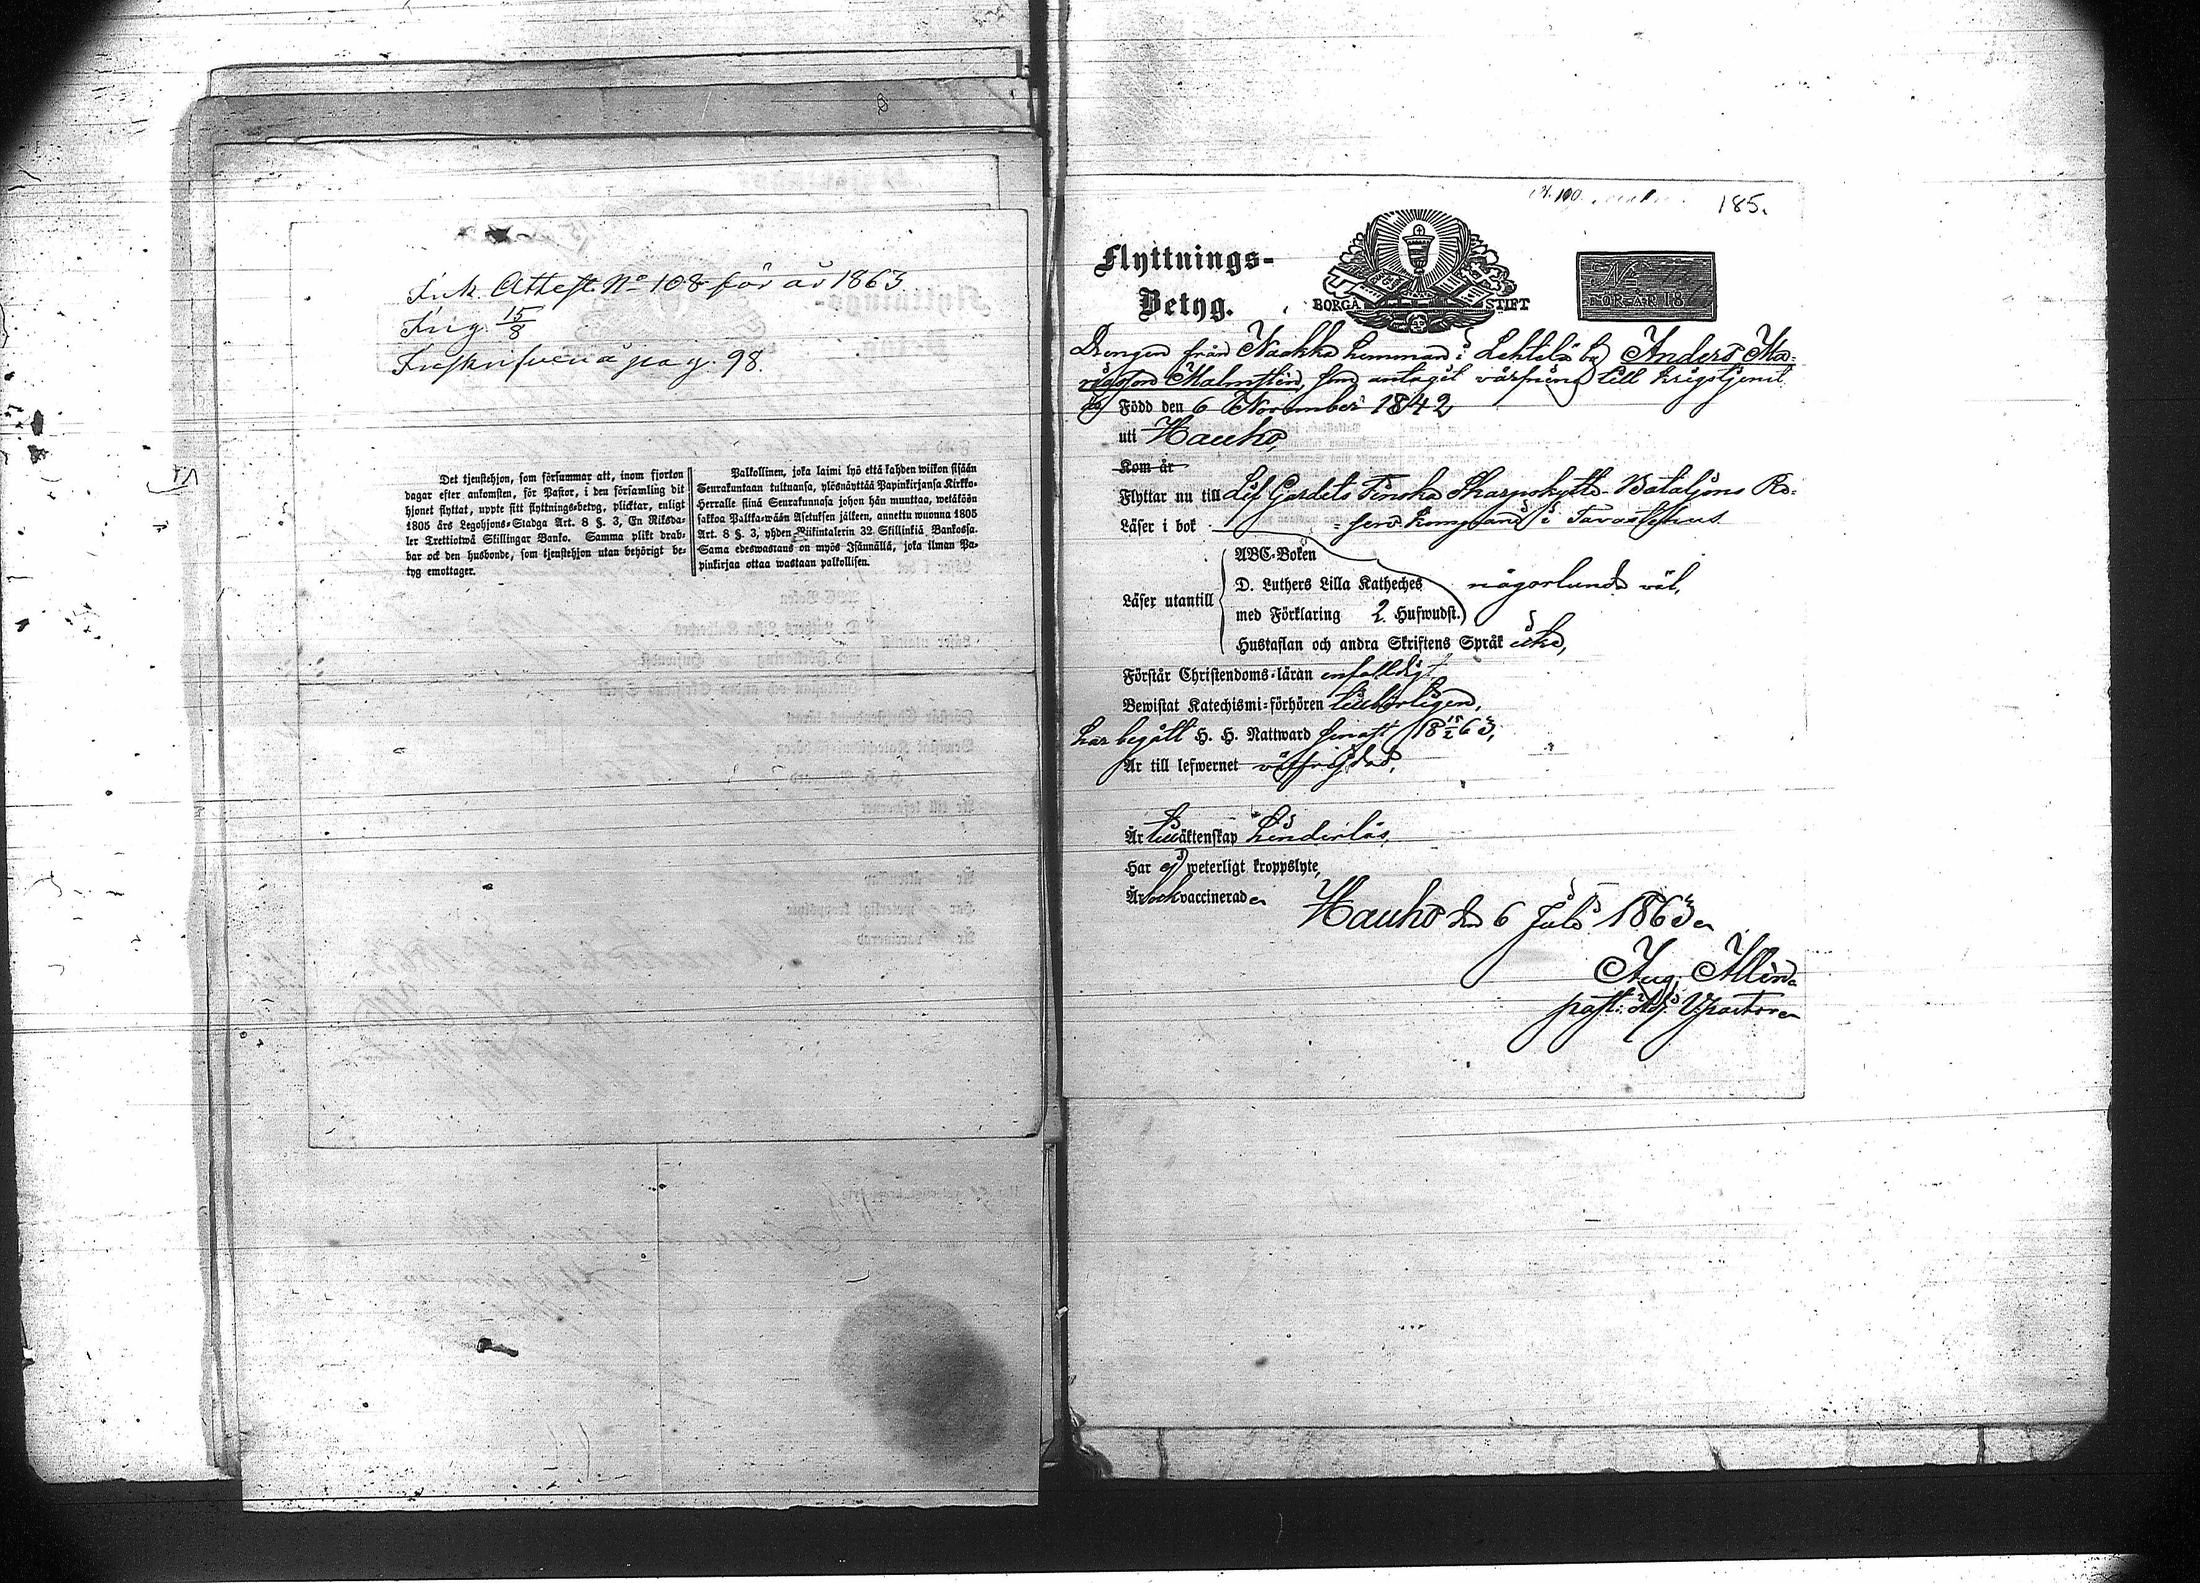 Ink. Attest. No 108 för år 1863
Frig. 15/8
Inskrifven å pag. 98.
Det tjenstehjon, som försummar att, inom fjorton
dagar efter ankomsten, för Pastor, i den församling dit
hjonet flyttat, uppte sitt flyttnings-betyg, plicktar, enligt
1805 års Legohjons-Stadga Art. 8 §. 3, En Riksda-
ler Trettiotwå Skillingar Banko. Samma plikt drab-
bar ock den husbonde, som tjenstehjon utan behörigt be-
tyg emottager.
Palkollinen, joka laimi lyö että kahden wiikon sisään
Seurakuntaan tultuansa, ylösnäyttää Papinkirjansa Kirkko-
Herralle siinä Seurakunnasa johon hän muuttaa, wetäköön
sakkoa Palkka-wään Asetuksen jälkeen, annettu wuonna 1805
Art. 8 §. 3, yhden Riikintalerin 32 Skillinkiä Bankossa.
Sama edeswastaus on myös Isännällä, joka ilman Pa-
pinkirjaa ottaa wastaan palkollisen.
185.
Flyttnings-
Betyg.
BORGÅ STIFT
No
FÖR ÅR 18
Drengen från Naakka hemman i Lehtelä by Anders Ma-
Malmstén, som antagit värfning till krigstjenst
Född den 6 November 1842
uti Hauho,
Kom år
Flyttar nu till Lif Gardets Finska Skarpskytte-Bataljons Re-
Läser i bok = serv kompani i Tavastehus
ABC-Boken
D. Luthers Lilla Katheches någorlunda väl,
Läser utantill
med Förklaring 2 Hufwudst.
Hustaflan och andra Skriftens Språk icke,
Förstår Christendoms-läran enfaldigt
Bewistat Katechismi-förhören tillbörligen,
har begått H. H. Nattward senast 18 15/2 63,
Är till lefwernet välfrejdad,
Är till äktenskap hinderlös,
Har ej weterligt kroppslyte,
Är och vaccinerad
Hauho den 6 Juli 1863
Aug. Allén
past: Adj. V. pastor